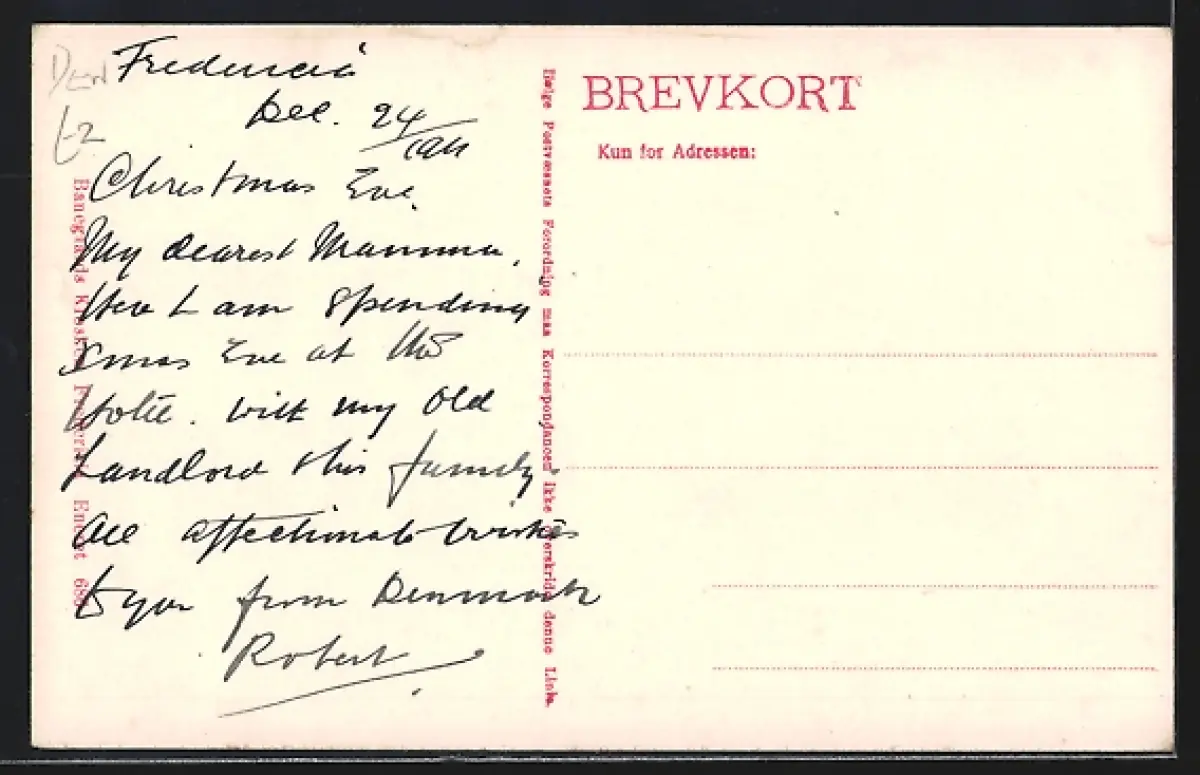 DEN
£2
Fredericia
Dec. 24/1911
Christmas Eve.
My dearest Mamma,
Here I am spending
Xmas Eve at this
Hotel. with my old
Landlord & his family
All affectionate wishes
to you from Denmark
Robert
Banegaards Kiosk, Fredericia Eneret
Ifølge Postvæsenets Forordning maa Korrespondancen ikke overskride denne Linie.
BREVKORT
Kun for Adressen: